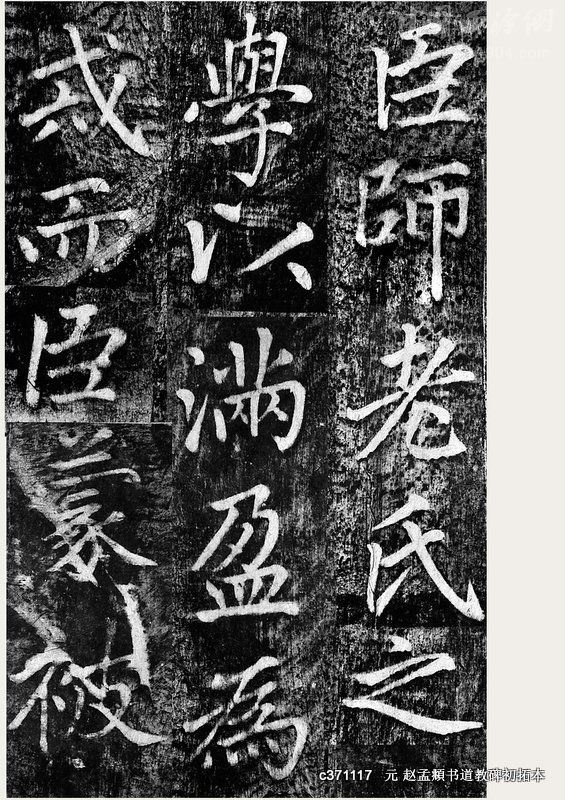 臣師老氏之
學以滿盈為
戒而臣蒙被
c371117 元 赵孟頫书道教碑初拓本